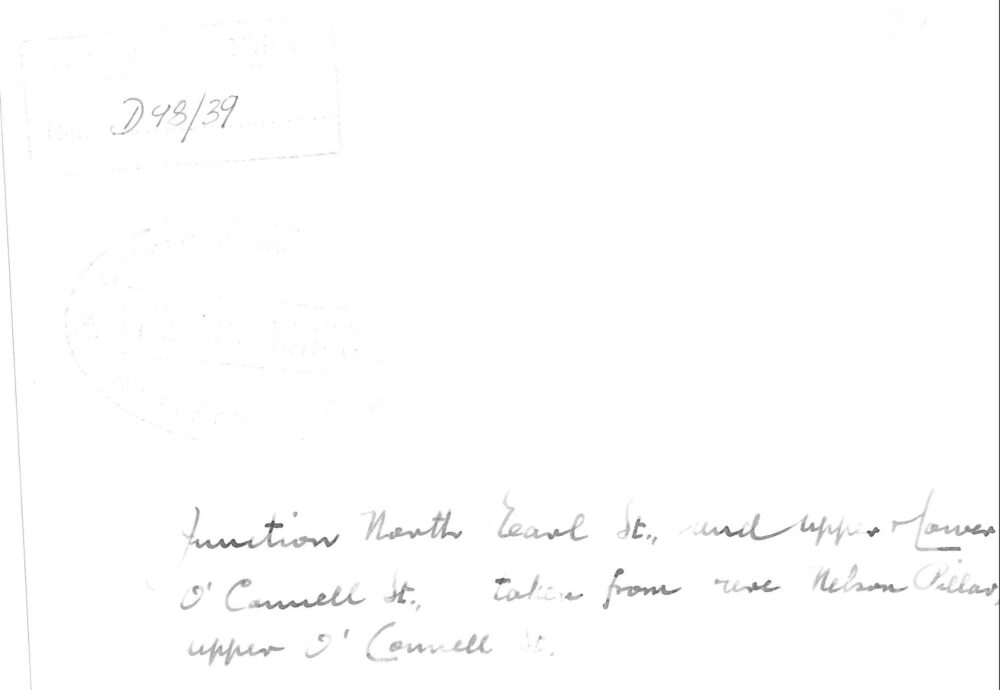 D48/39
Junction North Earl St., and upper & Lower
O' Connell St., taken from Nelson Pillar,
upper O' Connell St.